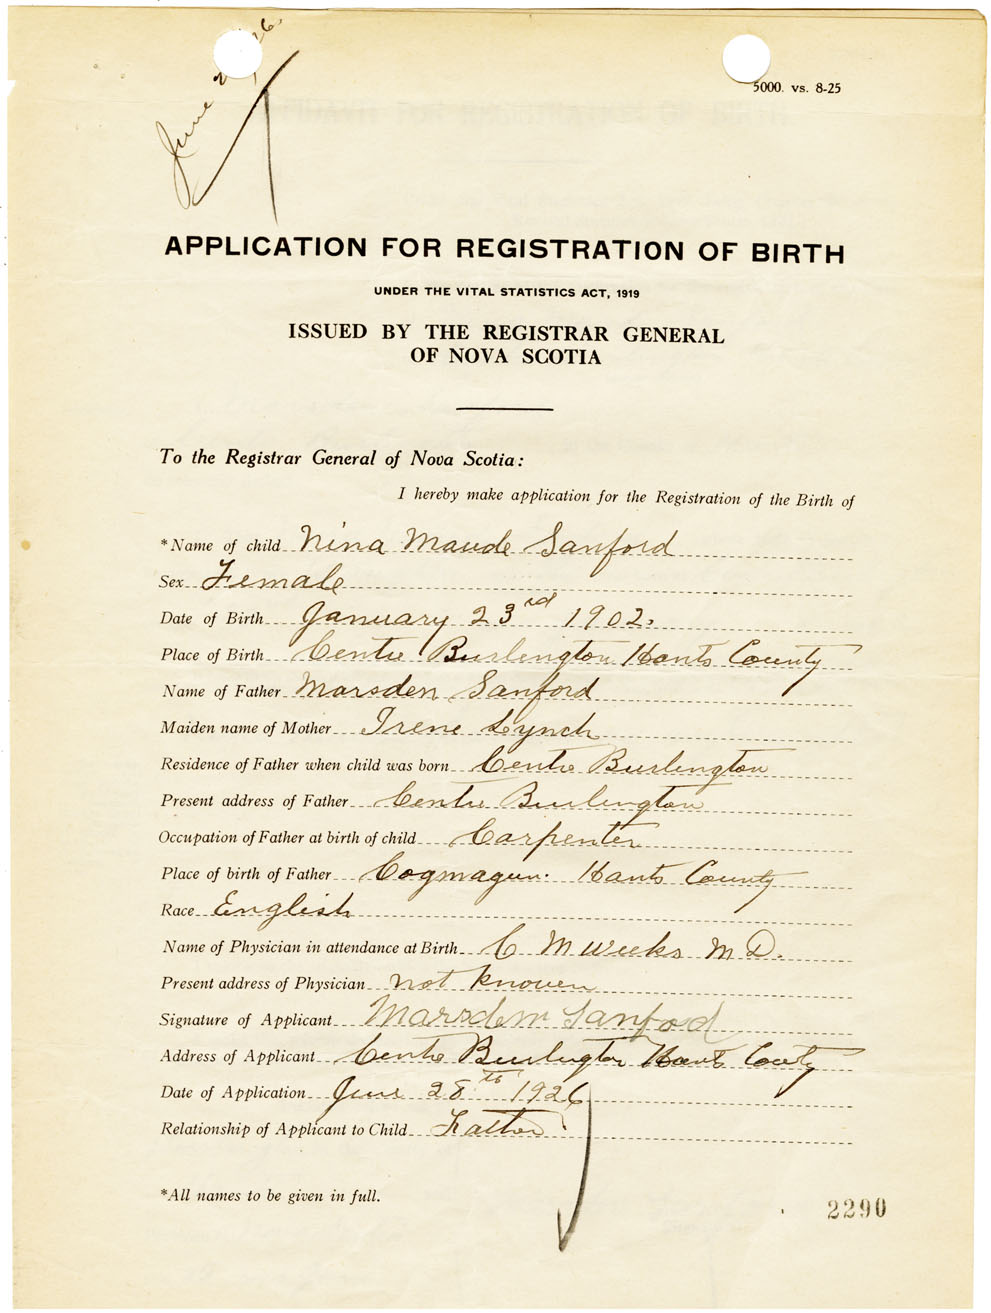 June 2 26
5000. vs. 8-25
APPLICATION FOR REGISTRATION OF BIRTH
UNDER THE VITAL STATISTICS ACT, 1919
ISSUED BY THE REGISTRAR GENERAL
OF NOVA SCOTIA
To the Registrar General of Nova Scotia:
I hereby make application for the Registration of the Birth of
*Name of child Nina Maude Sanford
Sex Female
Date of Birth January 23rd 1902.
Place of Birth Centre Burlington Hants County
Name of Father Marsden Sanford
Maiden name of Mother Irene Lynch
Residence of Father when child was born Centre Burlington
Present address of Father Centre Burlington
Occupation of Father at birth of child Carpenter
Place of birth of Father Cogmagun. Hants County
Race English
Name of Physician in attendance at Birth C M Weeks M D.
Present address of Physician not known
Signature of Applicant Marsden Sanford
Address of Applicant Centre Burlington Hants County
Date of Application June 28th 1926
Relationship of Applicant to Child Father
*All names to be given in full.
2290